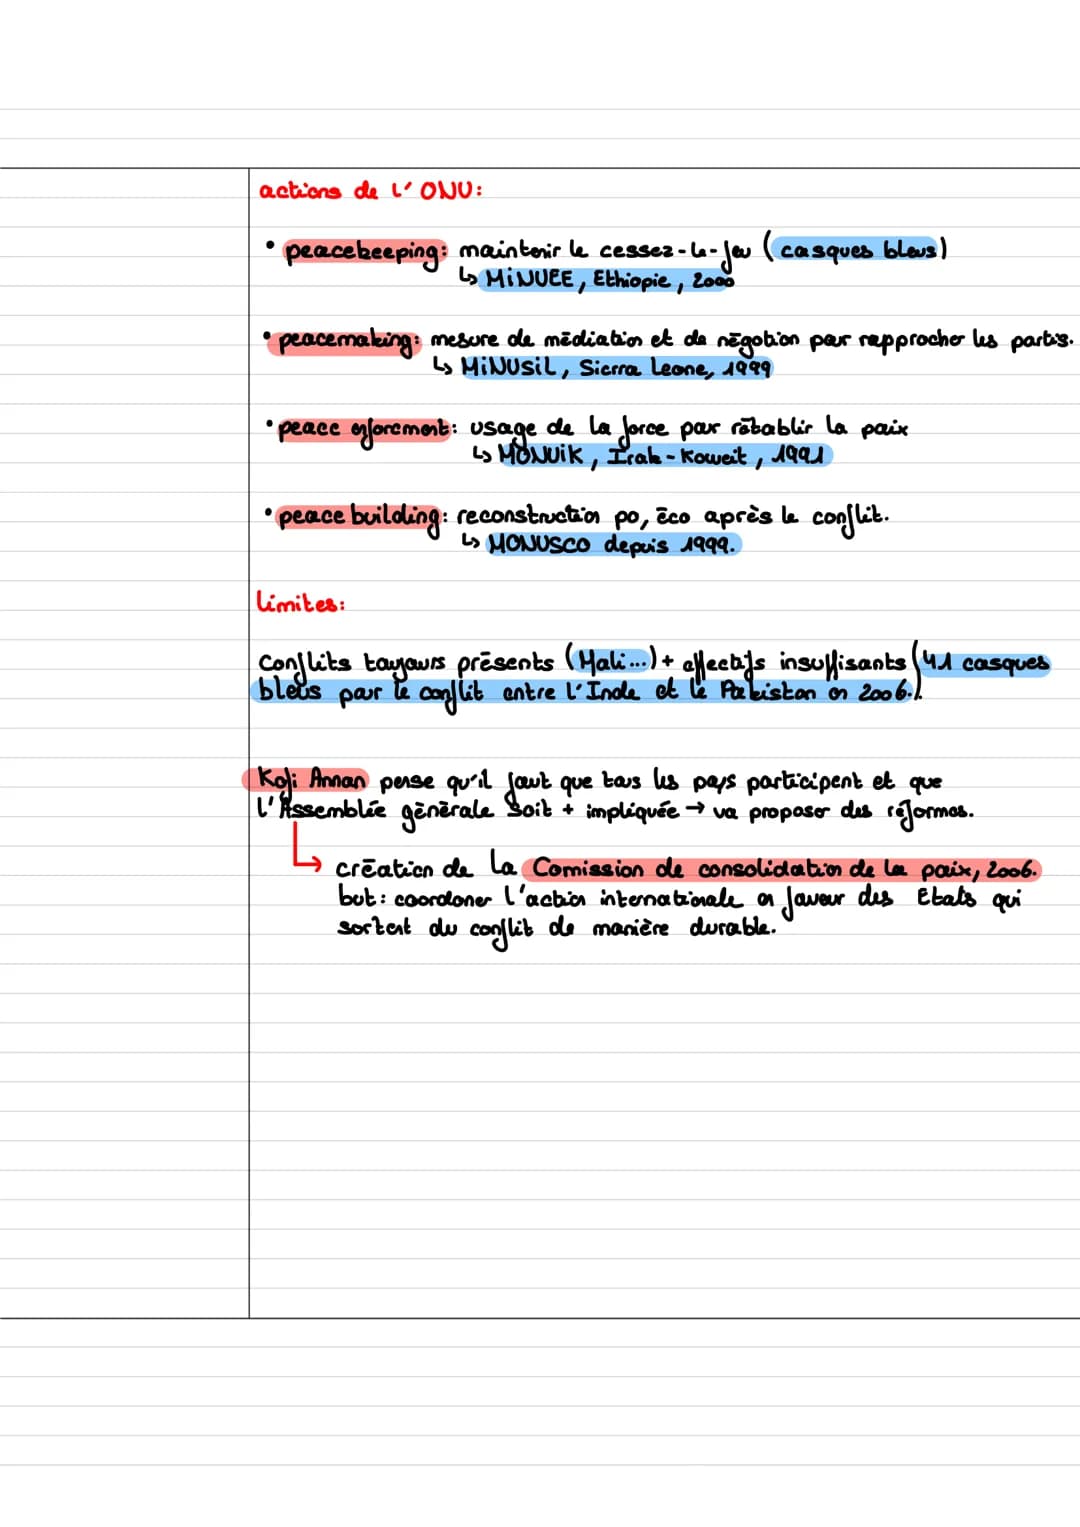 actions de L'ONU:
• peacekeeping: maintenir le cessez-le-feu (casques bleus)
↳ MiNUEE, Ethiopie, 2000
• peacemaking: mesure de médiation et de négotion pour rapprocher les partis.
↳ MiNUSiL, Sierra Leone, 1999
• peace enforcment: usage de la force pour rétablir la paix
↳ MONUiK, Irak-Koweit, 1991
• peace building: reconstruction po, éco après le conflit.
↳ MONUSCO depuis 1999.
Limites:
Conflits toujours présents (Mali...) + effectifs insuffisants (41 casques
bleus pour le conflit entre l'Inde et le Pakistan en 2006.).
Kofi Annan pense qu'il faut que tous les pays participent et que
l'Assemblée générale soit + impliquée → va proposer des réformes.
↳ création de la Comission de consolidation de la paix, 2006.
but: coordoner l'action internationale en faveur des Etats qui
sortent du conflit de manière durable.